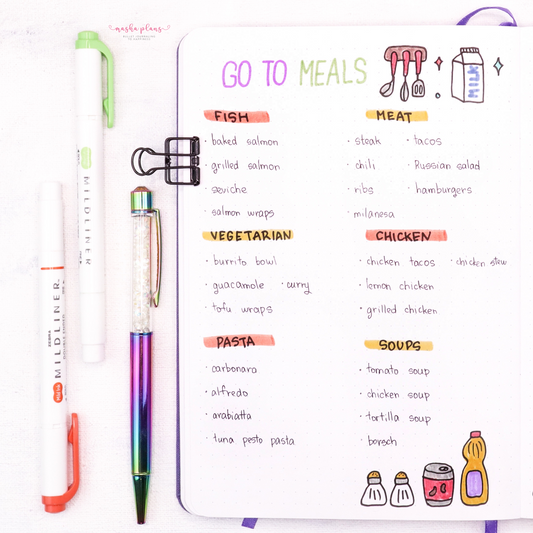 masha plans
GO TO MEALS
MILK
FISH
· baked salmon
· grilled salmon
· seviche
· salmon wraps
MEAT
· steak · tacos
· chili · Russian salad
· ribs · hamburgers
· milanesa
VEGETARIAN
· burrito bowl
· guacamole · curry
· tofu wraps
CHICKEN
· chicken tacos · chicken stew
· lemon chicken
· grilled chicken
PASTA
· carbonara
· alfredo
· arabiatta
· tuna pesto pasta
SOUPS
· tomato soup
· chicken soup
· tortilla soup
· borsch
MILDLINER
ZEBRA
MILDLINER